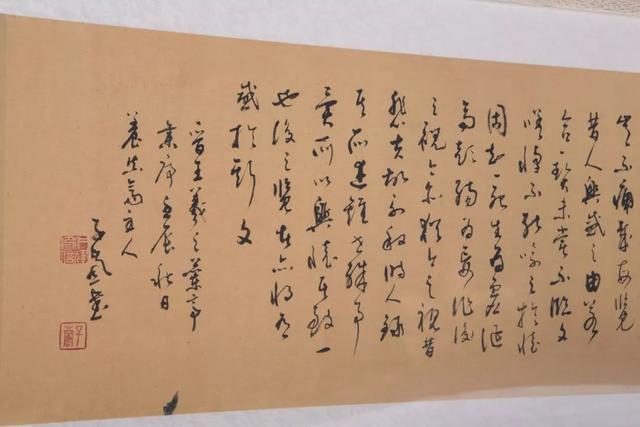 豈不痛哉每覽
昔人興感之由若
合一契未嘗不臨文
嗟悼不能喻之於懷
固知一死生為虛誕
齊彭殤為妄作後
之視今亦猶今之視昔
悲夫故列叙時人錄
其所述雖世殊事
異所以興懷其致一
也後之覽者亦將有
感於斯文
晉王羲之蘭亭
集序壬辰秋日
養真齋主人
子